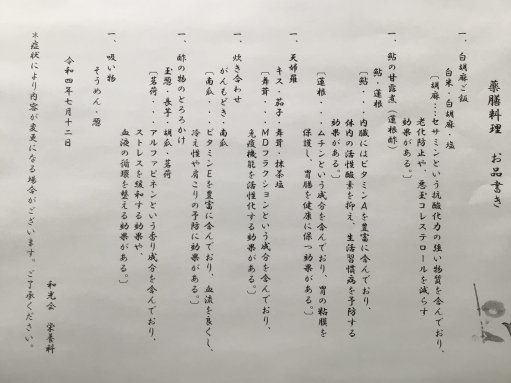 薬膳料理　お品書き
一、白胡麻ご飯
白米・白胡麻・塩
〔胡麻・・・セサミンという抗酸化力の強い物質を含んでおり、
老化防止や、悪玉コレステロールを減らす
効果がある。〕
一、鮎の甘露煮（蓮根酢
鮎・蓮根
〔鮎・・・・内臓にはビタミンAを豊富に含んでおり、
体内の活性酸素を抑え、生活習慣病を予防する
効果がある。〕
〔蓮根・・・ムチンという成分を含んでおり、胃の粘膜を
保護し、胃腸を健康に保つ効果がある。〕
一、天婦羅
キス・茄子・舞茸・抹茶塩
〔舞茸・・・MDフラクションという成分を含んでおり、
免疫機能を活性化する効果がある。〕
一、炊き合わせ
がんもどき・南瓜
〔南瓜・・・ビタミンEを豊富に含んでおり、血流を良くし、
冷え性や肩こりの予防に効果がある。〕
一、酢の物のとろろかけ
玉葱・長芋・胡瓜・茗荷
〔茗荷・・・アルファピネンという香り成分を含んでおり、
ストレスを緩和する効果や、
血液の循環を整える効果がある。〕
一、吸い物
そうめん・葱
令和四年七月十二日
和光会　栄養科
＊症状により内容が変更になる場合がございます。ご了承ください。